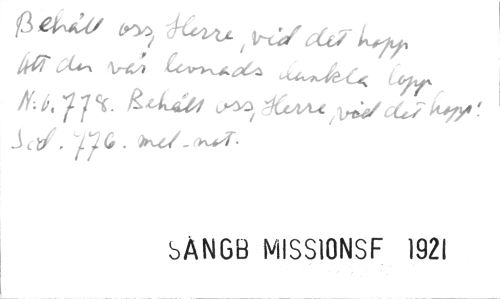 Behåll oss, Herre, vid det hopp
Att du vår levnads dunkla lopp
N:o. 778. Behåll oss, Herre, vid det hopp!
Sid. 776. mel-not.
SÅNGB MISSIONSF 1921